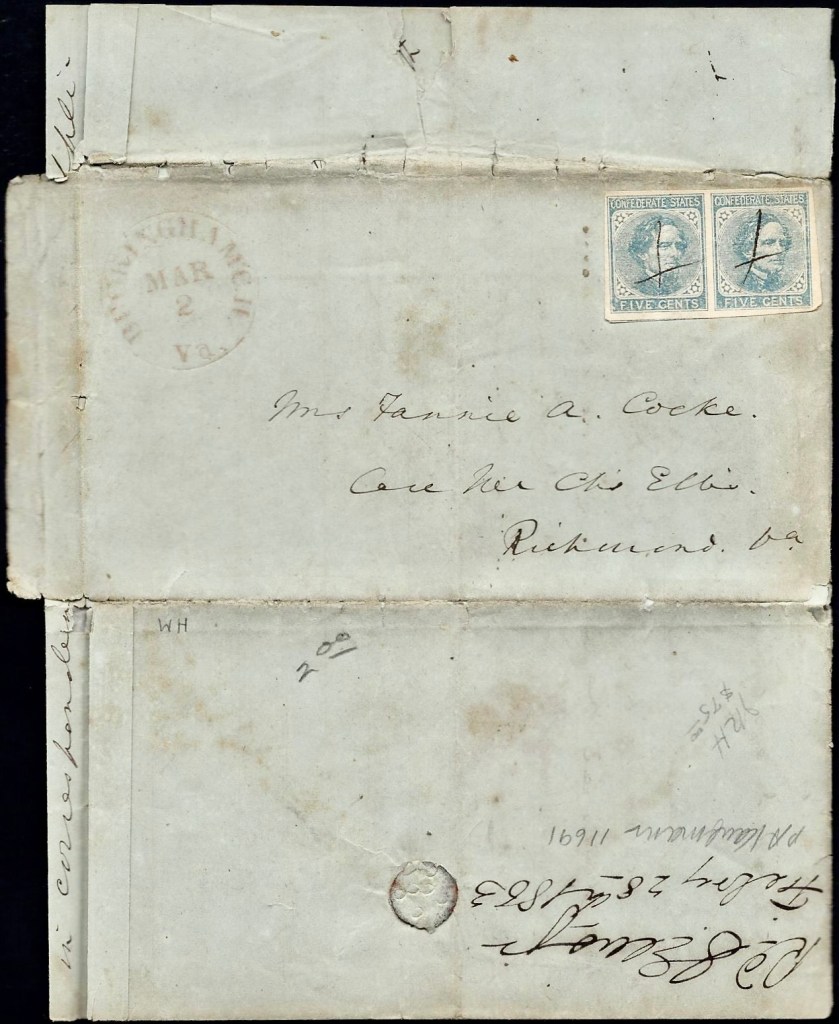 BUCKINGHAM C.H.
MAR
2
VA
CONFEDERATE STATES
FIVE CENTS
CONFEDERATE STATES
FIVE CENTS
Mrs Fannie A. Cocke.
Care Mr Chs Ellis.
Richmond. Va
WH
2 00
$75.00
PA Kaufmann 11691
Febry 28th 1863
in correspondence